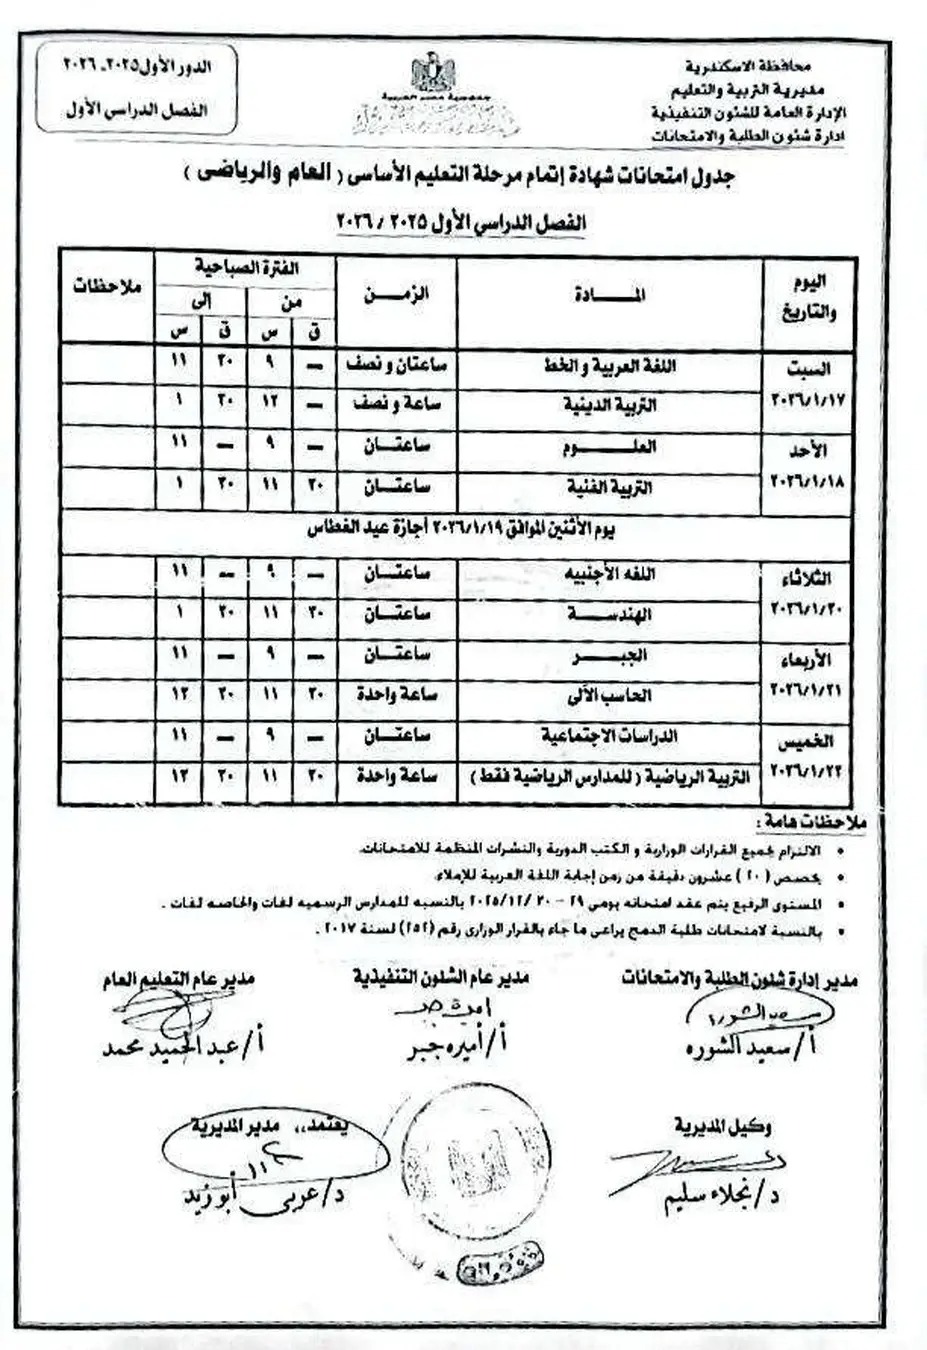 محافظة الاسكندرية
مديرية التربية والتعليم
الإدارة العامة للشئون التنفيذية
ادارة شئون الطلبة والامتحانات
جمهورية مصر العربية
الدور الأول ٢٠٢٥ـ ٢٠٢٦
الفصل الدراسي الأول
جدول امتحانات شهادة إتمام مرحلة التعليم الأساسى ( العام والرياضى )
الفصل الدراسي الأول ٢٠٢٥ / ٢٠٢٦
اليوم والتاريخ | المــادة | الزمــن | الفترة الصباحية | ملاحظات
من | إلى
ق | س | ق | س
السبت ٢٠٢٦/١/١٧ | اللغة العربية و الخط | ساعتان و نصف | — | ٩ | ٣٠ | ١١
التربية الدينية | ساعة و نصف | — | ١٢ | ٣٠ | ١
الأحد ٢٠٢٦/١/١٨ | العلـــــوم | ساعتــان | — | ٩ | — | ١١
التربية الفنية | ساعتــان | ٣٠ | ١١ | ٣٠ | ١
يوم الأثنين الموافق ٢٠٢٦/١/١٩ أجازة عيد الغطاس
الثلاثاء ٢٠٢٦/١/٢٠ | اللغه الأجنبيه | ساعتــان | — | ٩ | — | ١١
الهندســـة | ساعتــان | ٣٠ | ١١ | ٣٠ | ١
الأربعاء ٢٠٢٦/١/٢١ | الجبـــر | ساعتــان | — | ٩ | — | ١١
الحاسب الألى | ساعة واحدة | ٣٠ | ١١ | ٣٠ | ١٢
الخميس ٢٠٢٦/١/٢٢ | الدراسات الاجتماعية | ساعتــان | — | ٩ | — | ١١
التربية الرياضية ( للمدارس الرياضية فقط ) | ساعة واحدة | ٣٠ | ١١ | ٣٠ | ١٢
ملاحظات هامة :
• الالتزام بجميع القرارات الوزارية و الكتب الدورية والنشرات المنظمة للامتحانات.
• يخصص ( ٢٠ ) عشرون دقيقة من زمن إجابة اللغة العربية للإملاء.
• المستوى الرفيع يتم عقد امتحانه يومى ٢٩ – ٣٠ /٢٠٢٥/١٢ بالنسبه للمدارس الرسميه لغات والخاصه لغات .
• بالنسبة لامتحانات طلبة الدمج يراعى ما جاء بالقرار الوزارى رقم (٢٥٢) لسنة ٢٠١٧ .
مدير إدارة شئون الطلبة والامتحانات
أ/ سعيد الشوره
مدير عام الشئون التنفيذية
أ/ أميره جبر
مدير عام التعليم العام
أ/ عبد الحميد محمد
وكيل المديرية
د/ نجلاء سليم
يعتمد،، مدير المديرية
د/ عربى أبوزيد